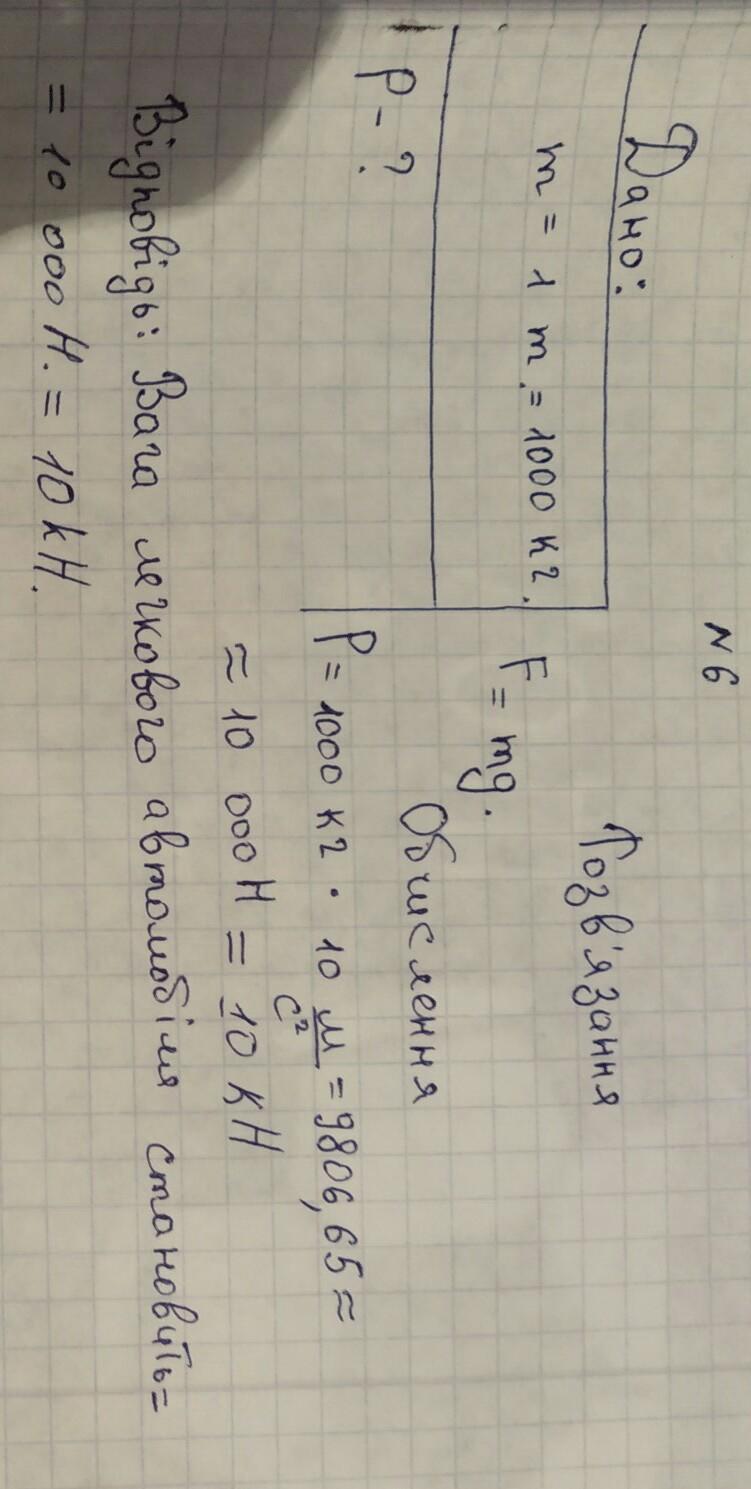 №6
Дано:
m = 1 т = 1000 кг.
P - ?
Розв'язання
F = mg.
Обчислення
P = 1000 кг · 10 м/с² = 9806,65 ≈
≈ 10 000 Н = 10 кН
Відповідь: Вага легкового автомобіля становить=
= 10 000 Н. = 10 кН.